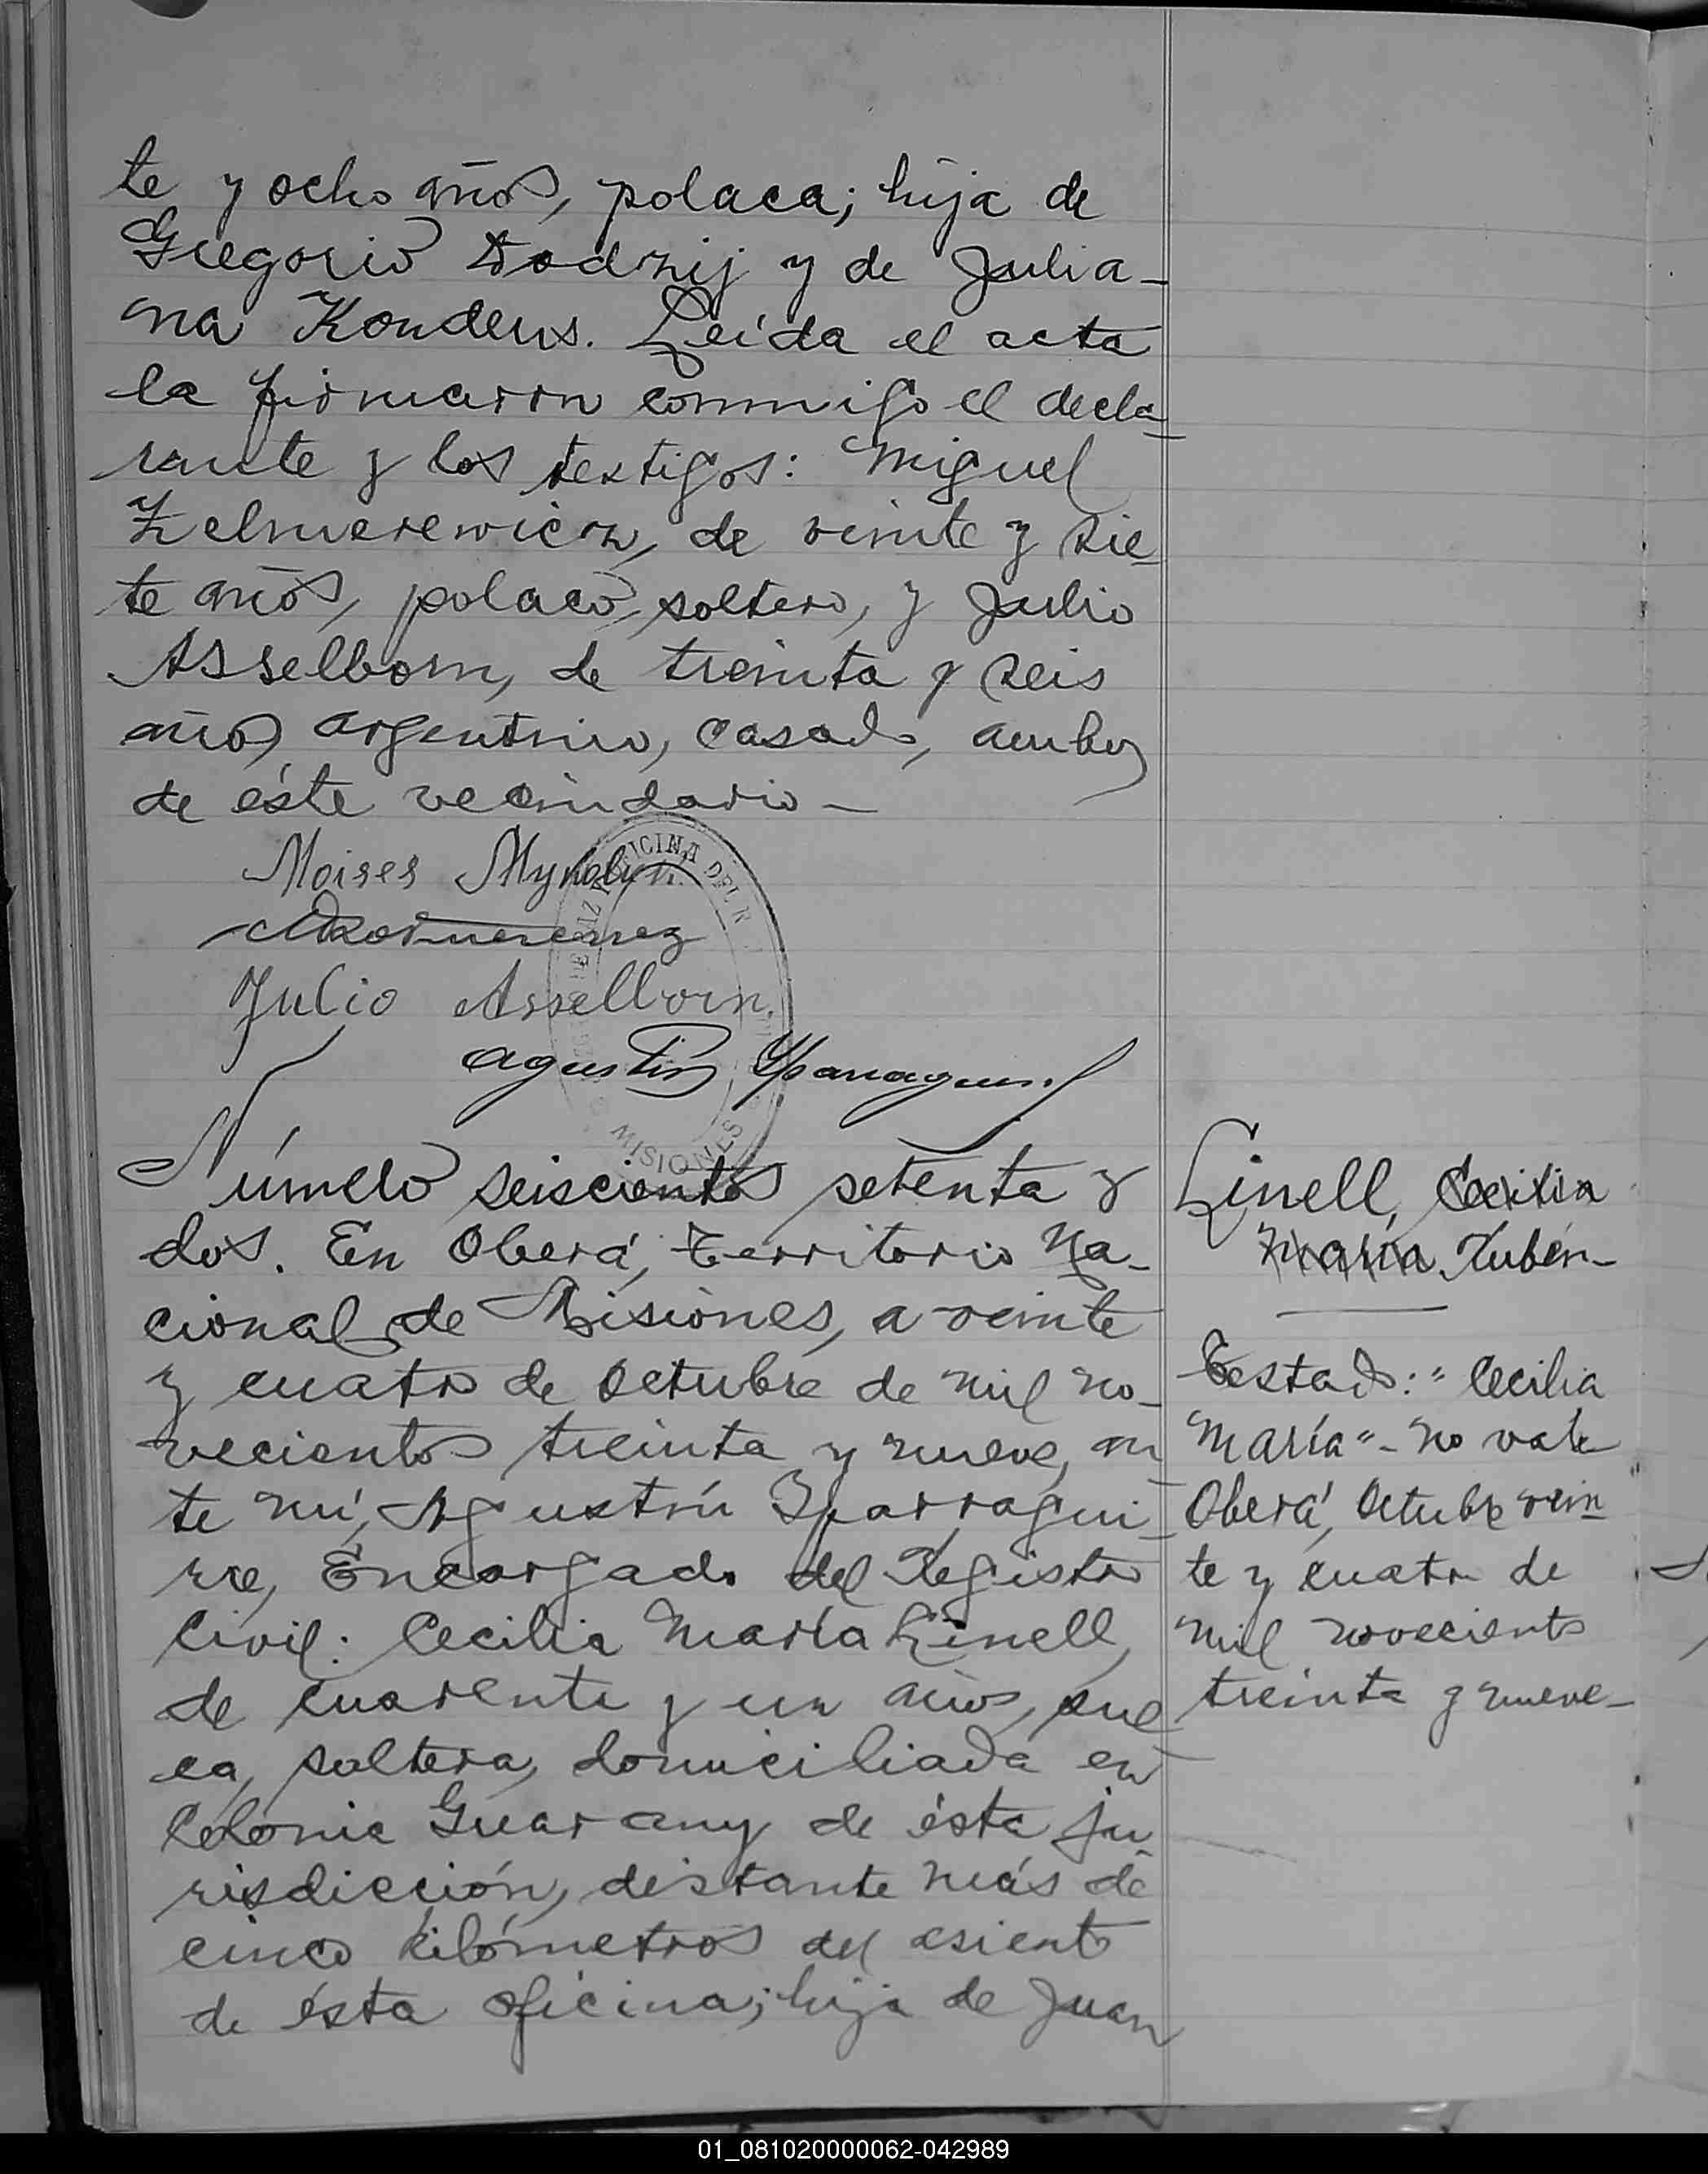 te y ocho años, polaca; hija de
Gregorio Dodzij y de Julia-
na Kondeus. Leída el acta
la firmaron conmigo el decla-
rante y los testigos: Miguel
Zelmerewicz, de veinte y sie-
te años, polaco, soltero, y Julio
Asselborn, de treinta y seis
años, argentino, casado, ambos
de éste vecindario-
Moises
Julio Asselborn.
Agustin Yparraguirre
OFICINA DEL R
MISIONES
Número seiscientos setenta y
dos. En Oberá, Territorio Na-
cional de Misiones, a veinte
y cuatro de Octubre de mil no-
vecientos treinta y nueve, an-
te mí, Agustín Yparragui-
rre, Encargado del Registro
Civil: Cecilia María Linell,
de cuarenta y un años, sue-
ca, soltera, domiciliada en
Colonia Guarany de ésta ju-
risdicción, distante más de
cinco kilómetros del asiento
de ésta oficina; hija de Juan
Linell, Cecilia
María Rubén-
Testado: "Cecilia
María"- no vale
Oberá, Octubre vein-
te y cuatro de
mil novecientos
treinta y nueve-
01_081020000062-042989